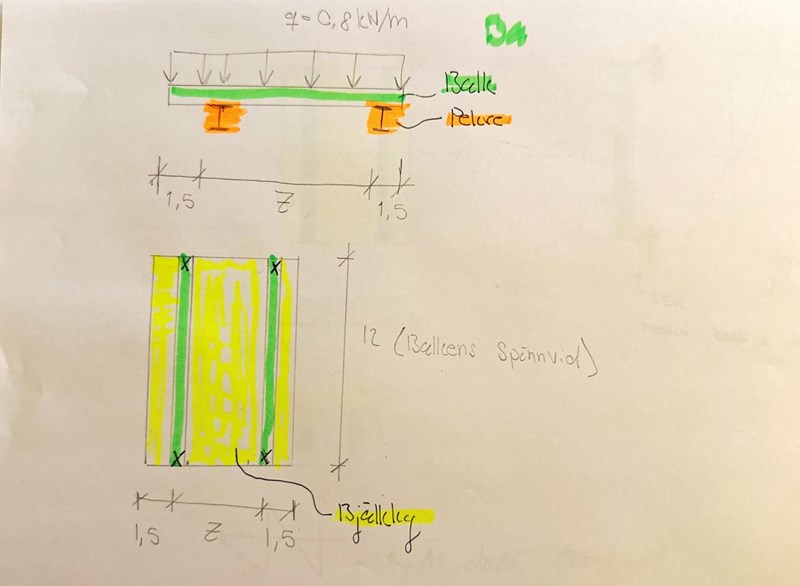 q=0,8 kN/m
Balk
Pelare
1,5 Z 1,5
12 (Balkens Spännvid)
Bjälklag
1,5 Z 1,5